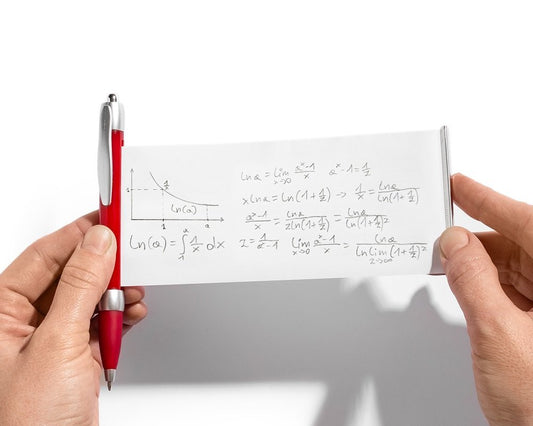 1/x
1
ln(a)
1
a
ln(a) = ∫₁ᵃ 1/x dx
ln a = lim x→0 (aˣ-1)/x    aˣ-1 = 1/z
x ln a = ln(1+1/z) → 1/x = ln a / ln(1+1/z)
(aˣ-1)/x = ln a / z ln(1+1/z) = ln a / ln(1+1/z)ᶻ
z = 1/(aˣ-1)    lim x→0 (aˣ-1)/x = ln a / ln lim z→∞ (1+1/z)ᶻ